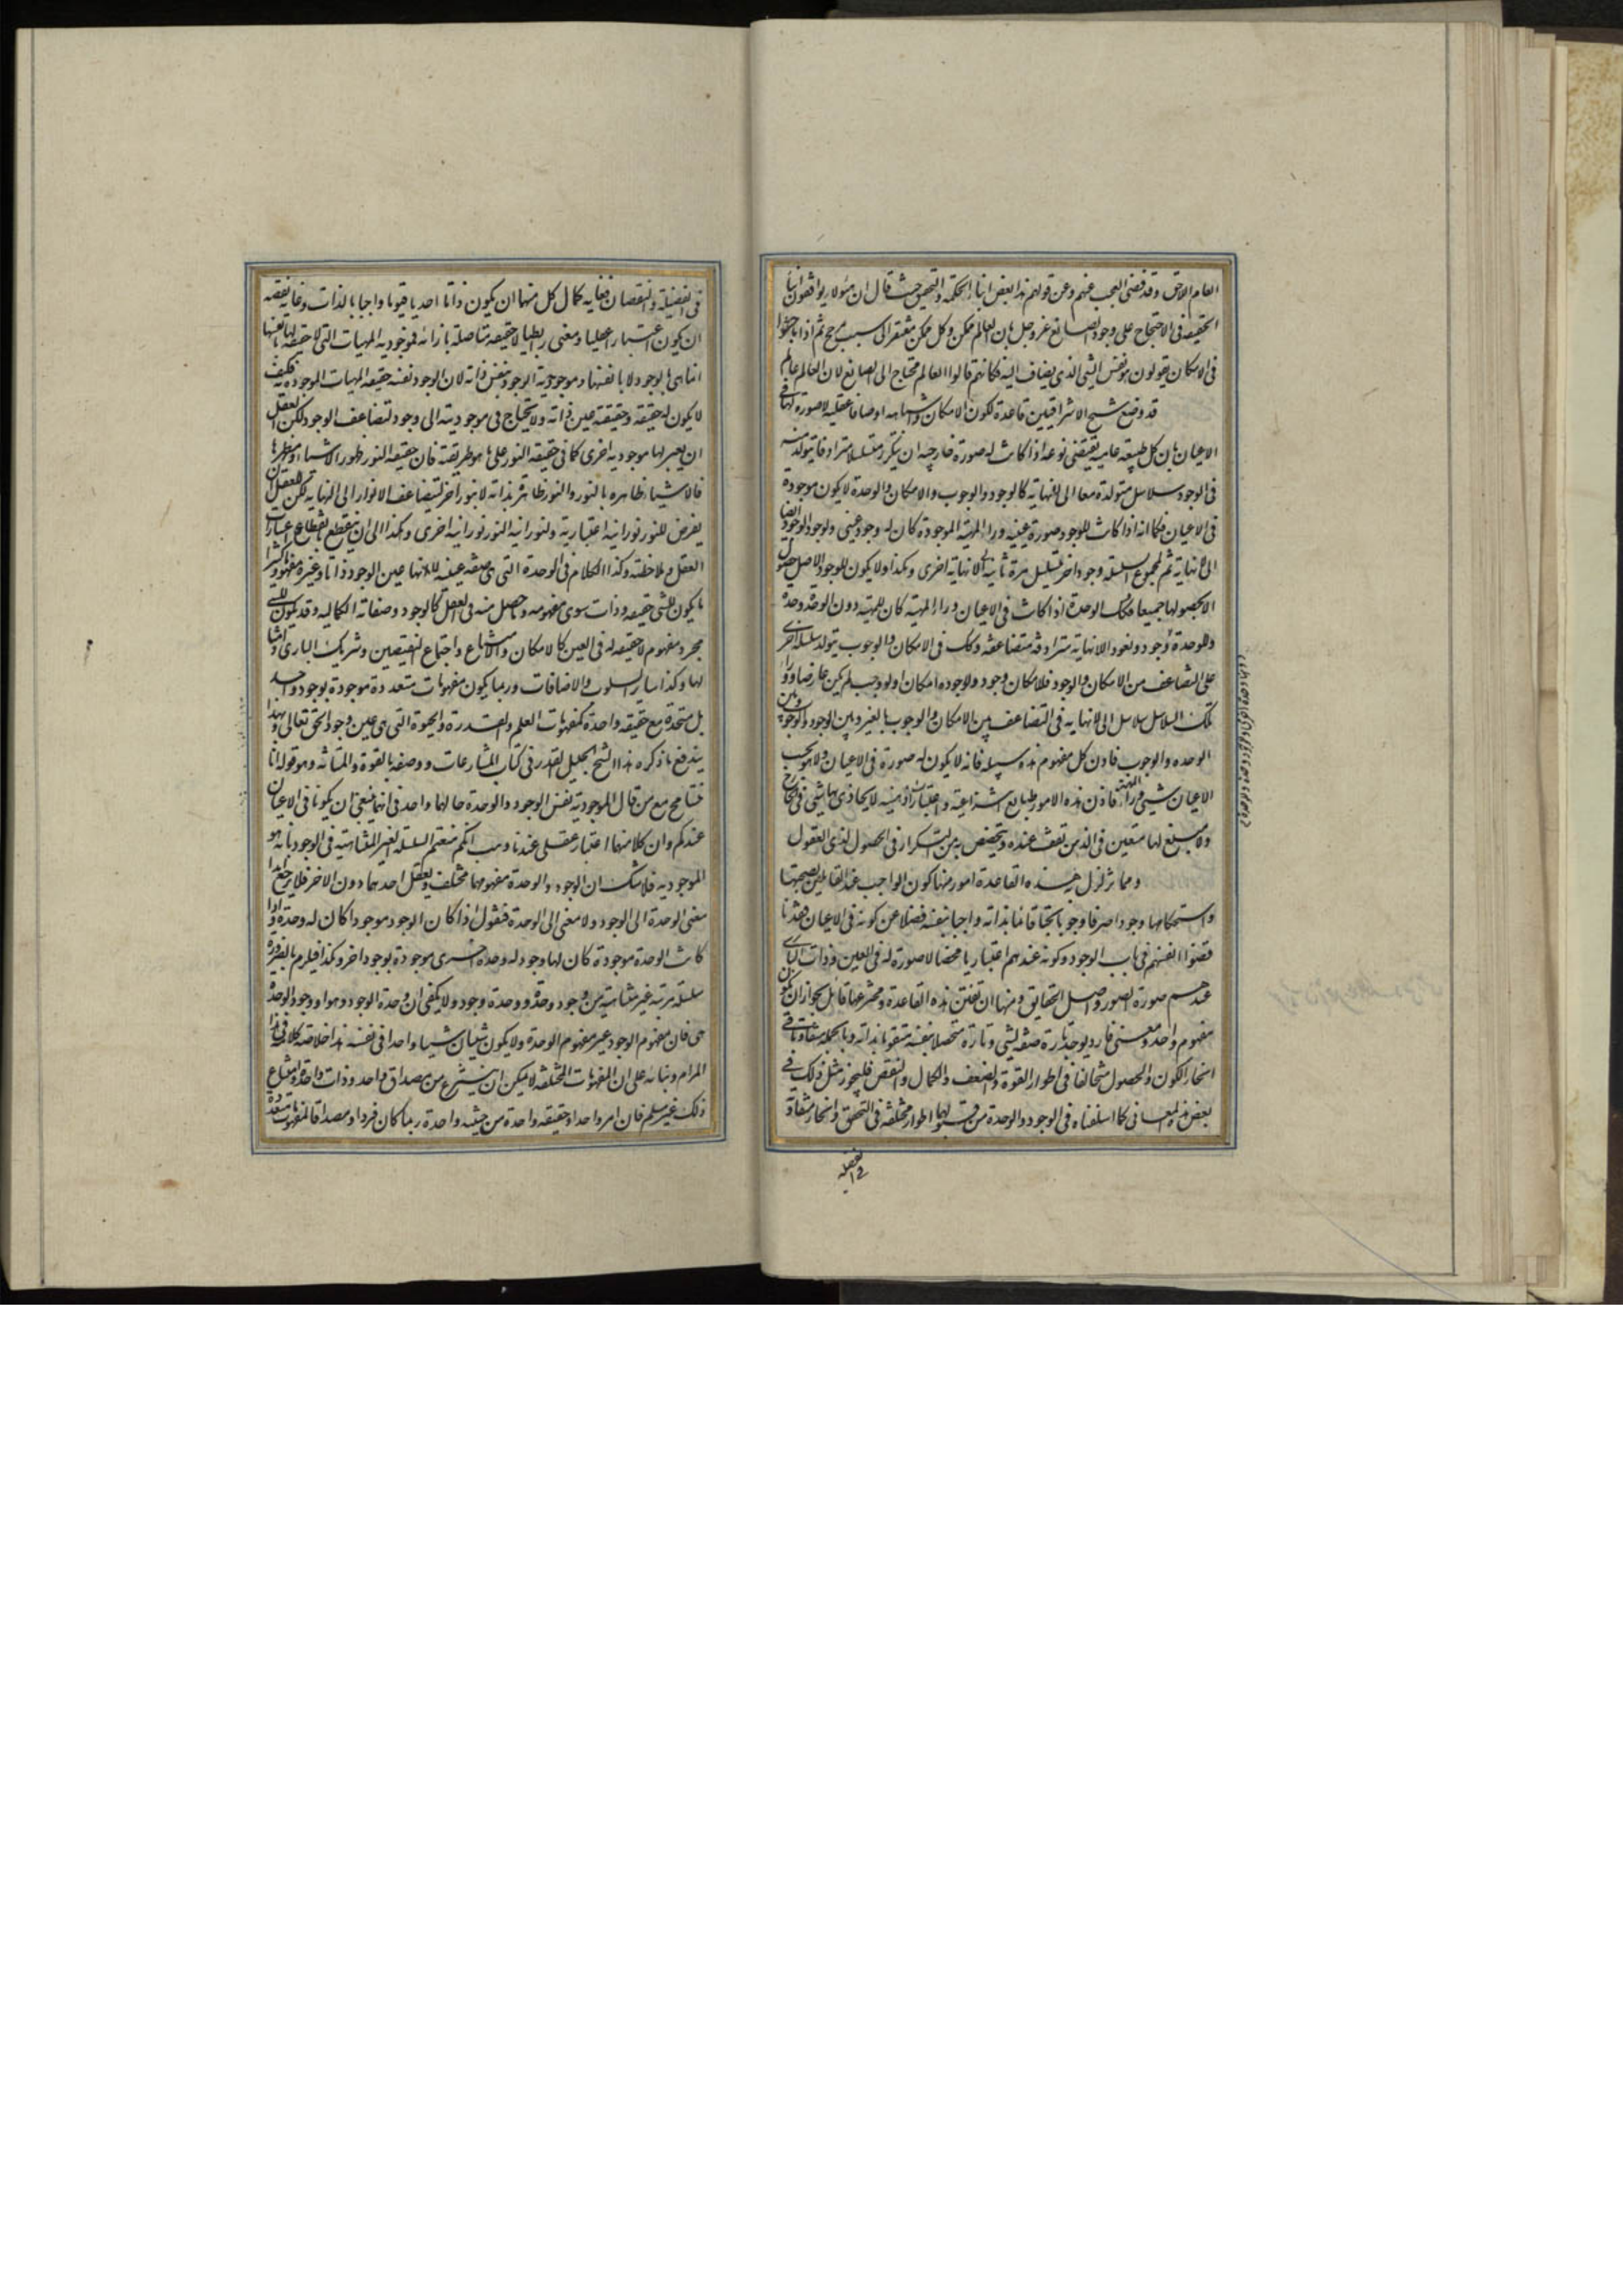 العام اللاحق وقد قضى العجب عنهم وعن قولهم هذا بعض ابناء الحكمة والتحقيق حيث قال ان هؤلاء يوافقون ابناء
الحقيقة فى الاحتجاج على وجود الصانع عز وجل بان العالم ممكن وكل ممكن مفتقر الى سبب مرجح ثم اذا باحثوا
فى الامكان يقولون هو نفس الشئ الذى يضاف اليه فكانهم قالوا العالم محتاج الى الصانع لان العالم عالم
قد وضع شيخ الاشراقيين قاعدة لكون الامكان واشباهه اوصافا عقلية لا صورة لها فى
الاعيان بان كل طبيعة عامة يقتضى نوعها اذا كانت له صورة خارجية ان يتكرر متسلسلا مترادفا يتولد منه
فى الوجود سلاسل متولدة معا الى لا نهاية كالوجود والوجوب والامكان والوحدة لا يكون موجودة
فى الاعيان فكما انه اذا كانت للوجود صورة عينية وراء المهية الموجودة كان له وجود عينى ولوجود الوجود ايضا
الى لا نهاية ثم لمجموع السلسلة وجود اخر تتسلسل مرة ثانية الى لا نهاية اخرى وهكذا ولا يكون للوجود الاصل حصول
الا بحصولها جميعا فكذلك الوحدة اذا كانت فى الاعيان وراء المهية كان للمهية دون الوحدة وحدة
وللوحدة وجود وتعود الى لا نهاية مترادفة متضاعفة وكذلك فى الامكان والوجوب يتولد سلسلة اخرى
على التضاعف من الامكان والوجود فلامكان وجود ولوجوده امكان اذ لو وجب لم يكن عارضا ووراء
تلك السلاسل سلاسل الى لا نهاية فى التضاعف بين الامكان والوجوب بالغير وبين الوجود والوجوب وبين
الوحدة والوجوب فاذن كل مفهوم هذه سبيله فانه لا يكون له صورة فى الاعيان ولا هو بحسب
الاعيان شئ وراء المهية فاذن هذه الامور طبايع انتزاعية واعتبارات ذهنية لا يحاذى بها شئ فى الخارج
ولا مبلغ لها متعين فى الذهن تقف عنده ويتخصص به من التكرار فى الحصول لذى العقول
ومما زلزل هذه القاعدة امور منها كون الواجب عند القائلين بصحتها
واستحكامها وجودا صرفا ووجوبا بحتا قائما بذاته واجبا بنفسه فضلا عن كونه فى الاعيان وهذا
قضوا انفسهم فى باب الوجود وكونه عندهم اعتباريا محضا لا صورة له فى العين وذات البارى
عندهم صورة الصور واصل الحقايق ومنها ان تفنن هذه القاعدة ومخترعها قائل بجواز ان يكون
مفهوم واحد ومعنى فارد يوجد تارة صفة لشئ وتارة متحصلا بنفسه متقوما بذاته وبالجملة متفاوتا فى
انحاء الكون والحصول متخالفا فى اطوار القوة والضعف والكمال والنقص فليجوز مثل ذلك فى
بعض هذه المعانى كما اسلفناه فى الوجود والوحدة من قبولهما اطوار مختلفة فى التحقق وانحاء متفاوتة
فى الفضيلة والنقصان فغاية كمال كل منهما ان يكون ذاتا احديا قيوما واجبا بالذات وغاية نقصه
ان يكون اعتبارا عقليا ومعنى ربطيا لا حقيقة متاصلة بازائه فموجودية المهيات التى لا حقيقة لها بانفسها
انما هى بالوجود لا بانفسها وموجودية الوجود بنفس ذاته لان الوجود نفسه حقيقة المهيات الموجودة به فكيف
لا يكون له حقيقة وحقيقته عين ذاته ولا يحتاج فى موجوديته الى وجود لتضاعف الوجود لكن للعقل
ان يعتبر لها موجودية اخرى كما فى حقيقة النور على ما هو طريقته فان حقيقة النور ظهور الاشياء ومظهرها
فالاشياء ظاهرة بالنور والنور ظاهر بذاته لا بنور اخر لتضاعف الانوار الى لا نهاية لكن للعقل ان
يفرض للنور نورانية اعتبارية ولنورانية النور نورانية اخرى وهكذا الى ان ينقطع بانقطاع اعتبارات
العقل وملاحظته وكذا الكلام فى الوحدة التى هى صفة عينية لانها عين الوجود ذاتا وغيره مفهوما وكثيرا
ما يكون للشئ حقيقة وذات سوى مفهومه وما حصل منه فى العقل كالوجود وصفاته الكمالية وقد يكون للشئ
مجرد مفهوم لا حقيقة له فى العين كالامكان والامتناع واجتماع النقيضين وشريك البارى وامثا
لها وكذا ساير السلوب والاضافات وربما يكون مفهومات متعددة موجودة بوجود واحد
بل متحدة مع حقيقة واحدة كمفهومات العلم والقدرة والحيوة التى هى عين وجود الحق تعالى وبهذا
يندفع ما ذكره هذا الشيخ الجليل القدر فى كتاب المشارعات ووصفه بالقوة والمتانة وهو قوله انا
نتسامح مع من قال الموجودية نفس الوجود والوحدة حالها واحد فى انهما ينبغى ان يكونا فى الاعيان
عندكم وان كلا منهما اعتبار عقلى عندنا وهب انكم منعتم السلسلة الغير المتناهية فى الوجود بانه هو
الموجودية فلا شك ان الوجود والوحدة مفهومهما مختلف ويعقل احدهما دون الاخر فلا يرجع ابدا
معنى الوحدة الى الوجود ولا معنى الى الوحدة فنقول اذا كان الوجود موجودا كان له وحدة واذا
كانت الوحدة موجودة كان لها وجود له وحدة اخرى موجودة بوجود اخر وهكذا فيلزم بالضرورة
سلسلة مرتبة غير متناهية من وجود وحدة ووحدة وجود ولا يكفى ان وحدة الوجود وهو او وجود الوحدة
هى فان مفهوم الوجود غير مفهوم الوحدة ولا يكون شيئان شيئا واحدا فى نفسه هذا خلاصة كلامه فى هذا
المرام وبنائه على ان المفهومات المختلفة لا يمكن ان ينتزع من مصداق واحد وذات واحدة وامتناع
ذلك غير مسلم فان امر واحدا وحقيقة واحدة من حيثية واحدة ربما كان فردا ومصداقا لمفهومات متعددة